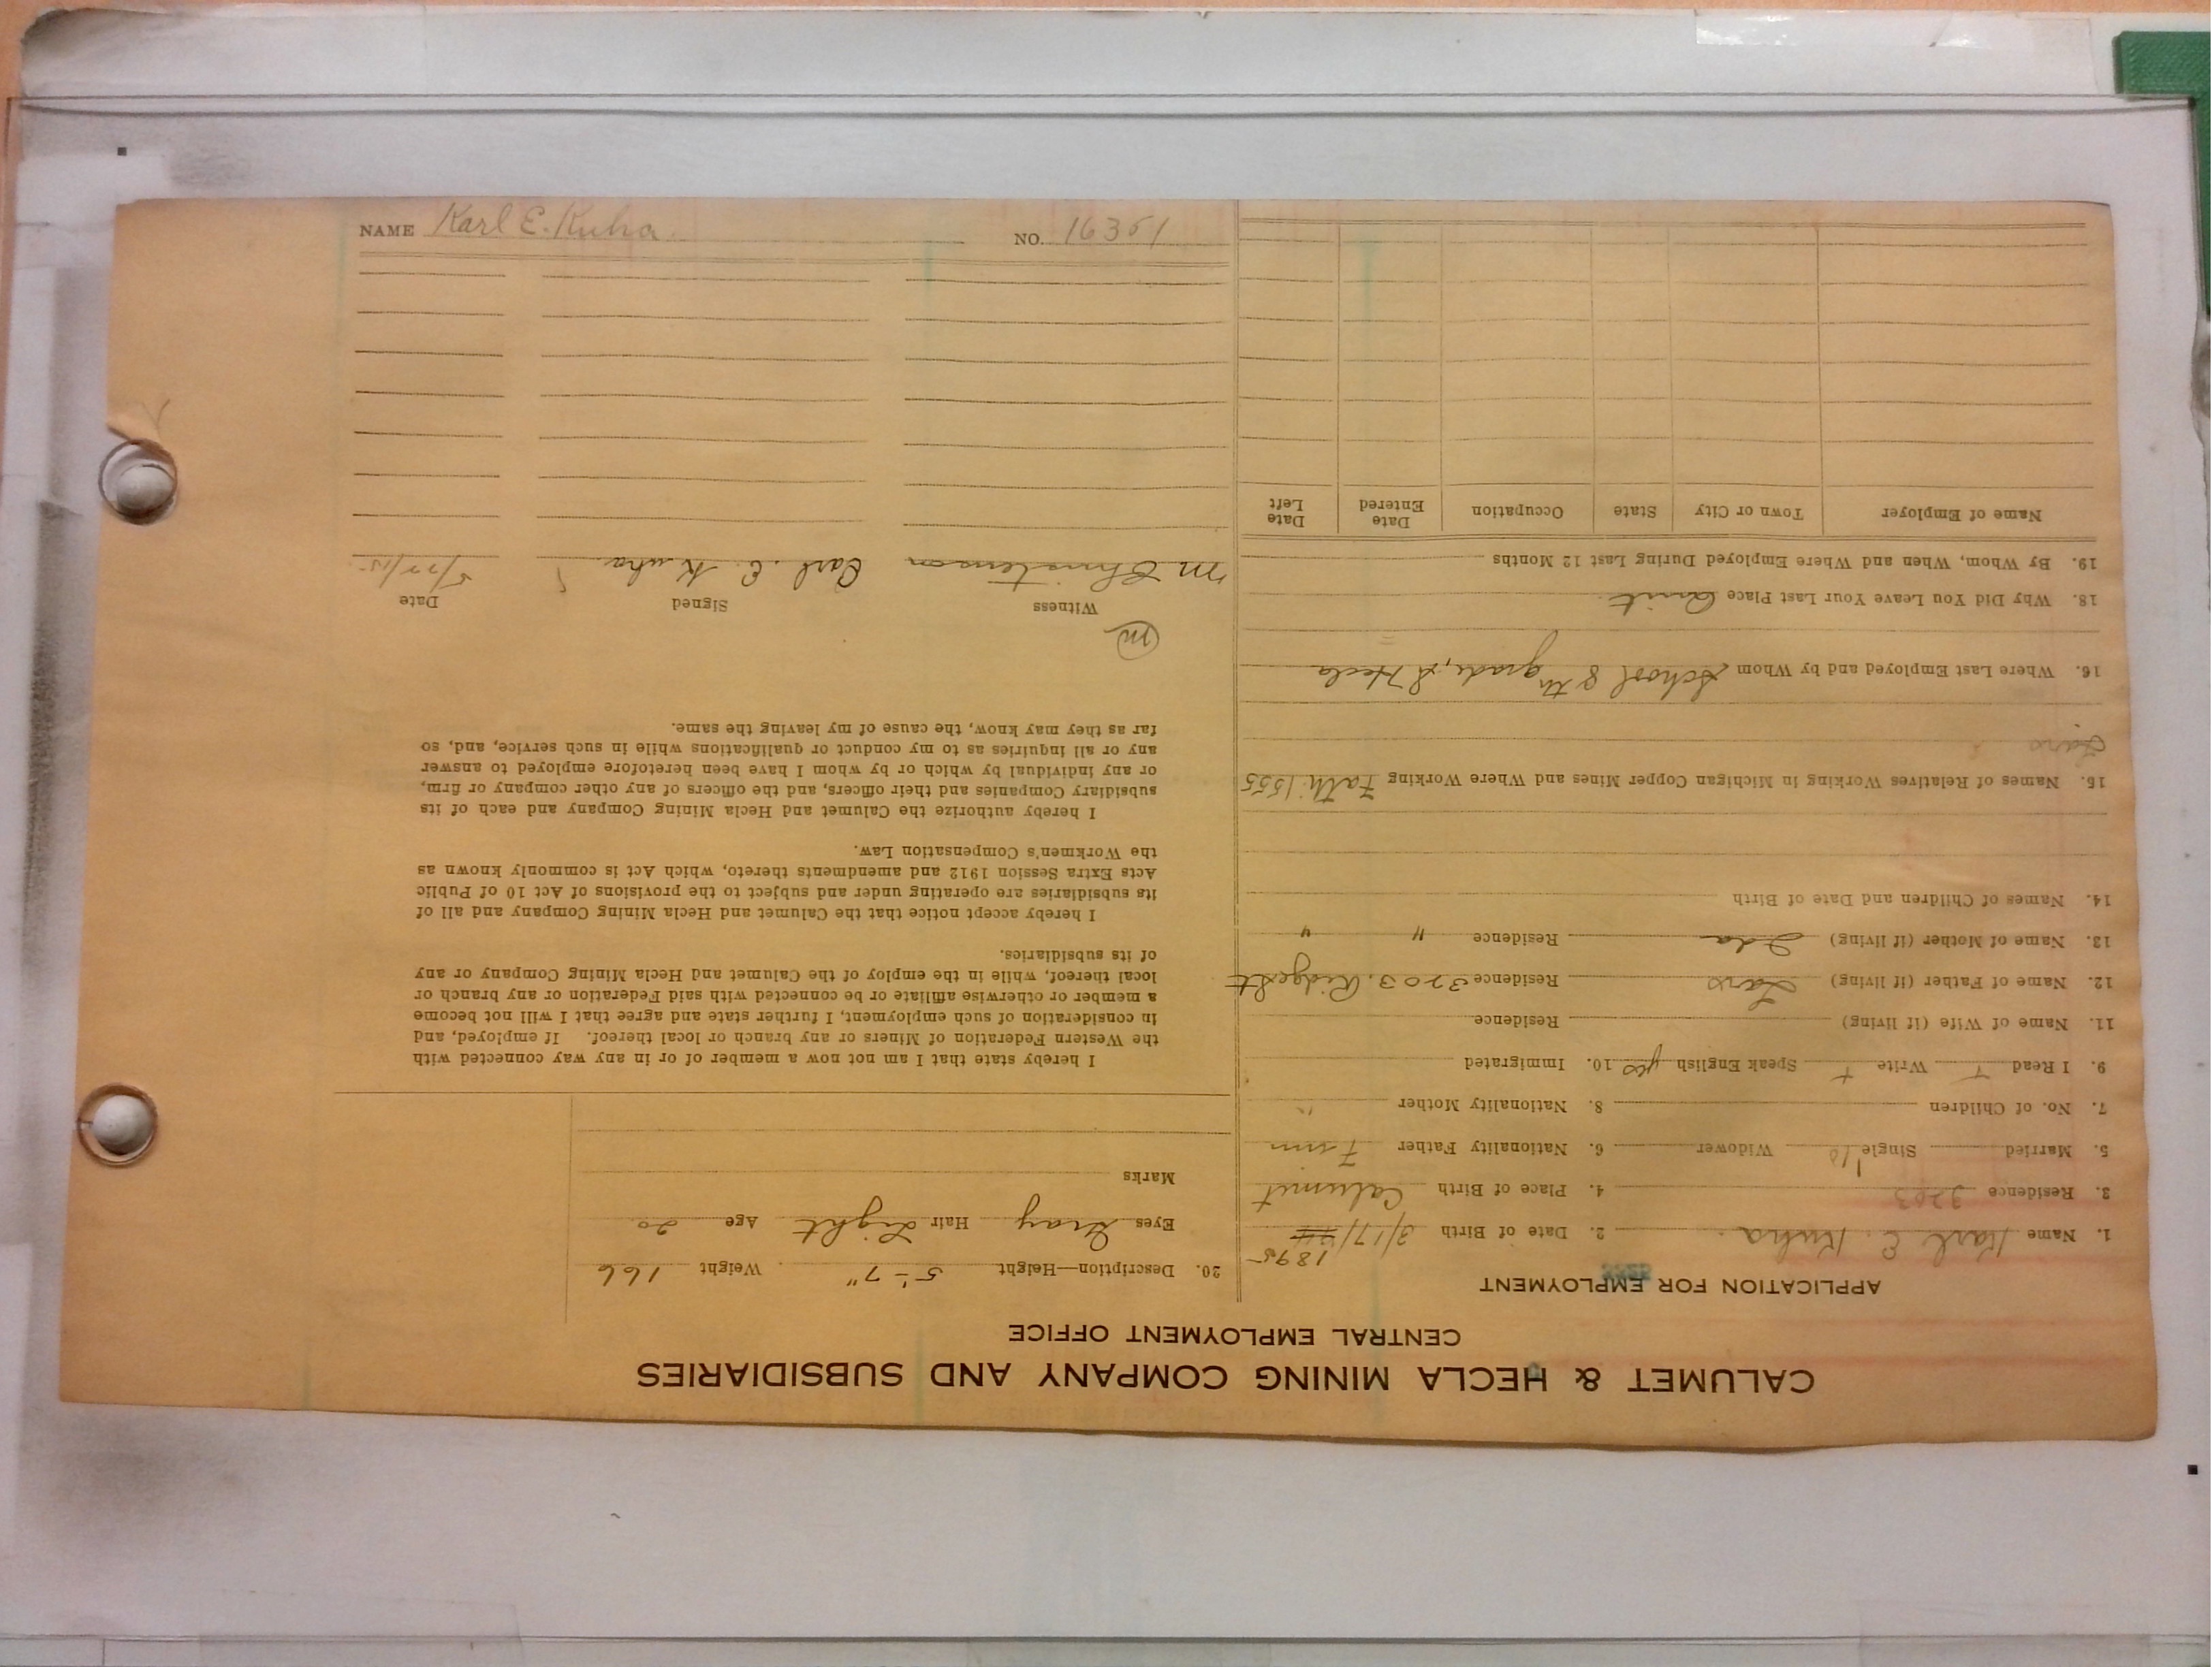 NAME Karl E. Kuha. NO. 16351
CALUMET & HECLA MINING COMPANY AND SUBSIDIARIES
CENTRAL EMPLOYMENT OFFICE
APPLICATION FOR EMPLOYMENT
1. Name Karl E. Kuha. 2. Date of Birth 3/17/ 1895
3. Residence 3203 4. Place of Birth Calumet
5. Married Single Widower 6. Nationality Father Finn
7. No. of Children 8. Nationality Mother "
9. I Read Write Speak English yes 10. Immigrated
11. Name of Wife (if living) Residence
12. Name of Father (if living) Lars Residence 3203. Ridge St
13. Name of Mother (if living) Ida Residence " "
14. Names of Children and Date of Birth
15. Names of Relatives Working in Michigan Copper Mines and Where Working Fath. 1555
Lars
16. Where Last Employed and by Whom School 8th grade, S Hecla
18. Why Did You Leave Your Last Place Quit
19. By Whom, When and Where Employed During Last 12 Months
Name of Employer Town or City State Occupation Date Entered Date Left
20. Description—Height 5'-7" Weight 166
Eyes Gray Hair Light Age 20
Marks
I hereby state that I am not now a member of or in any way connected with
the Western Federation of Miners or any branch or local thereof. If employed, and
in consideration of such employment, I further state and agree that I will not become
a member or otherwise affiliate or be connected with said Federation or any branch or
local thereof, while in the employ of the Calumet and Hecla Mining Company or any
of its subsidiaries.
I hereby accept notice that the Calumet and Hecla Mining Company and all of
its subsidiaries are operating under and subject to the provisions of Act 10 of Public
Acts Extra Session 1912 and amendments thereto, which Act is commonly known as
the Workmen's Compensation Law.
I hereby authorize the Calumet and Hecla Mining Company and each of its
subsidiary Companies and their officers, and the officers of any other company or firm,
or any individual by which or by whom I have been heretofore employed to answer
any or all inquiries as to my conduct or qualifications while in such service, and, so
far as they may know, the cause of my leaving the same.
m
Witness Signed Date
M Christenson Carl. E. Kuha.